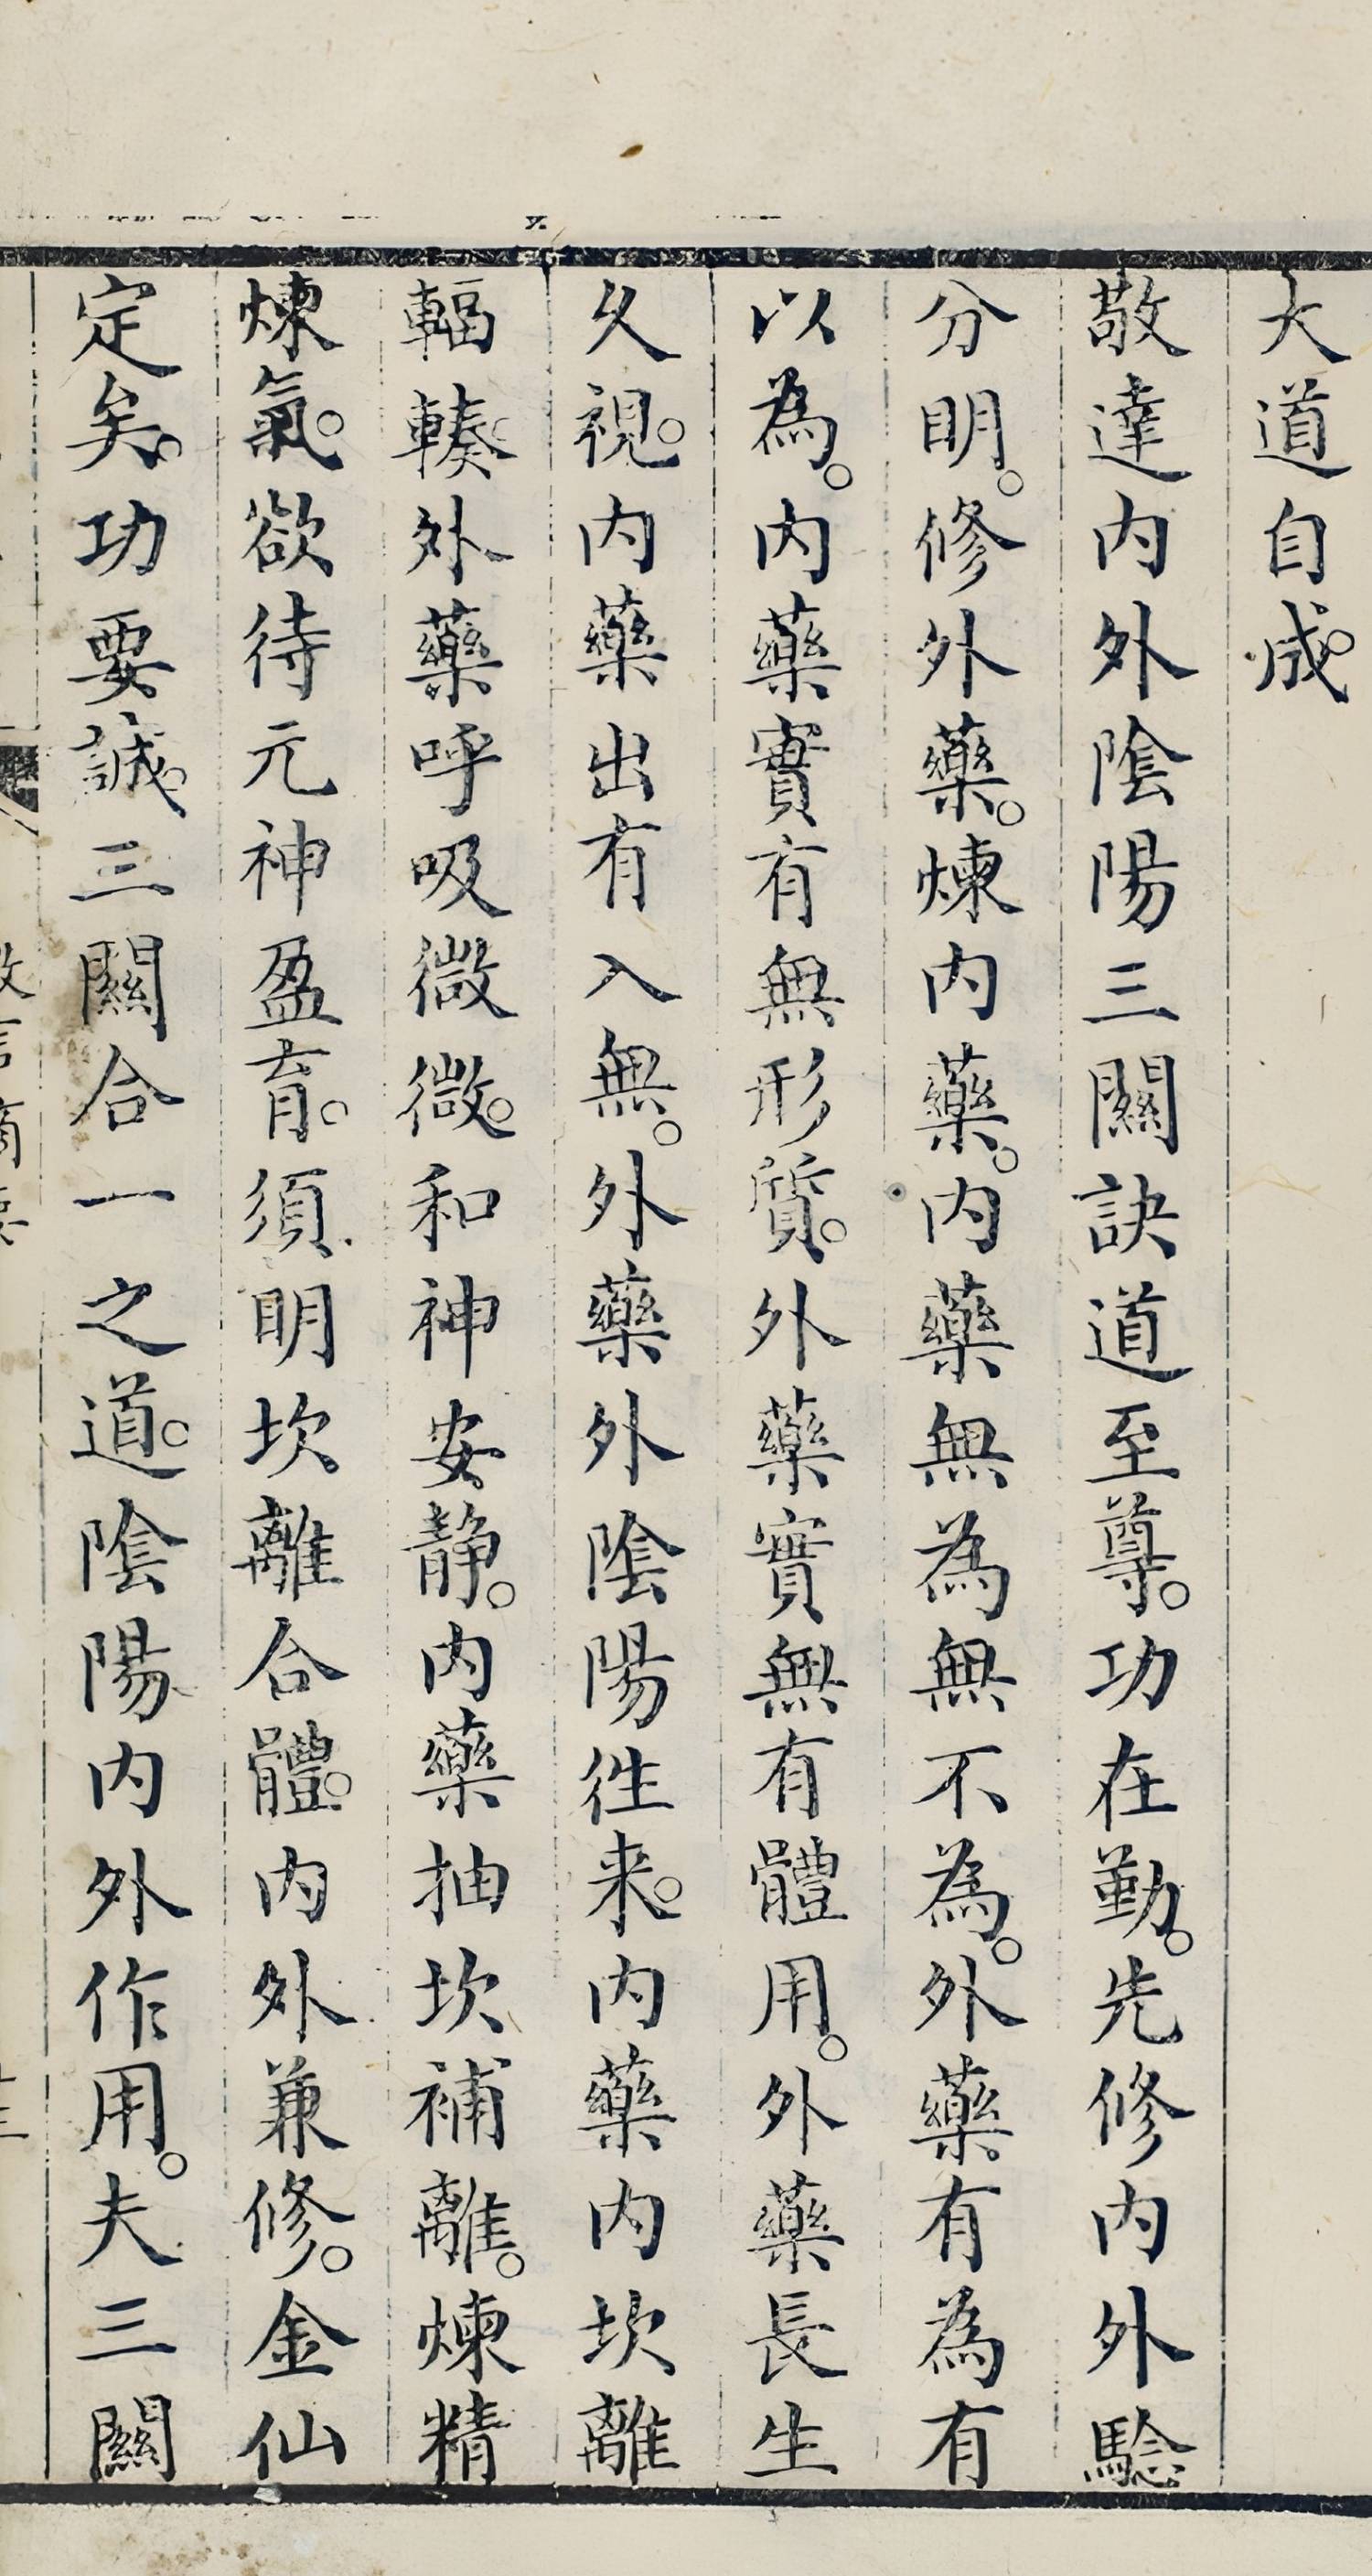 大道自成。
敬達內外陰陽三關訣道至尊。功在勤。先修內外騐
分明。修外藥。煉內藥。內藥無為無不為。外藥有為有
以為。內藥實有無形質。外藥實無有體用。外藥長生
久視。內藥出有入無。外藥外陰陽徃来。內藥內坎離
輻輳。外藥呼吸微微。和神安静。內藥抽坎補離。煉精
煉氣。欲待元神盈育。須明坎離合體。內外兼修。金仙
定矣。功要誠。三關合一之道。陰陽內外作用。夫三關